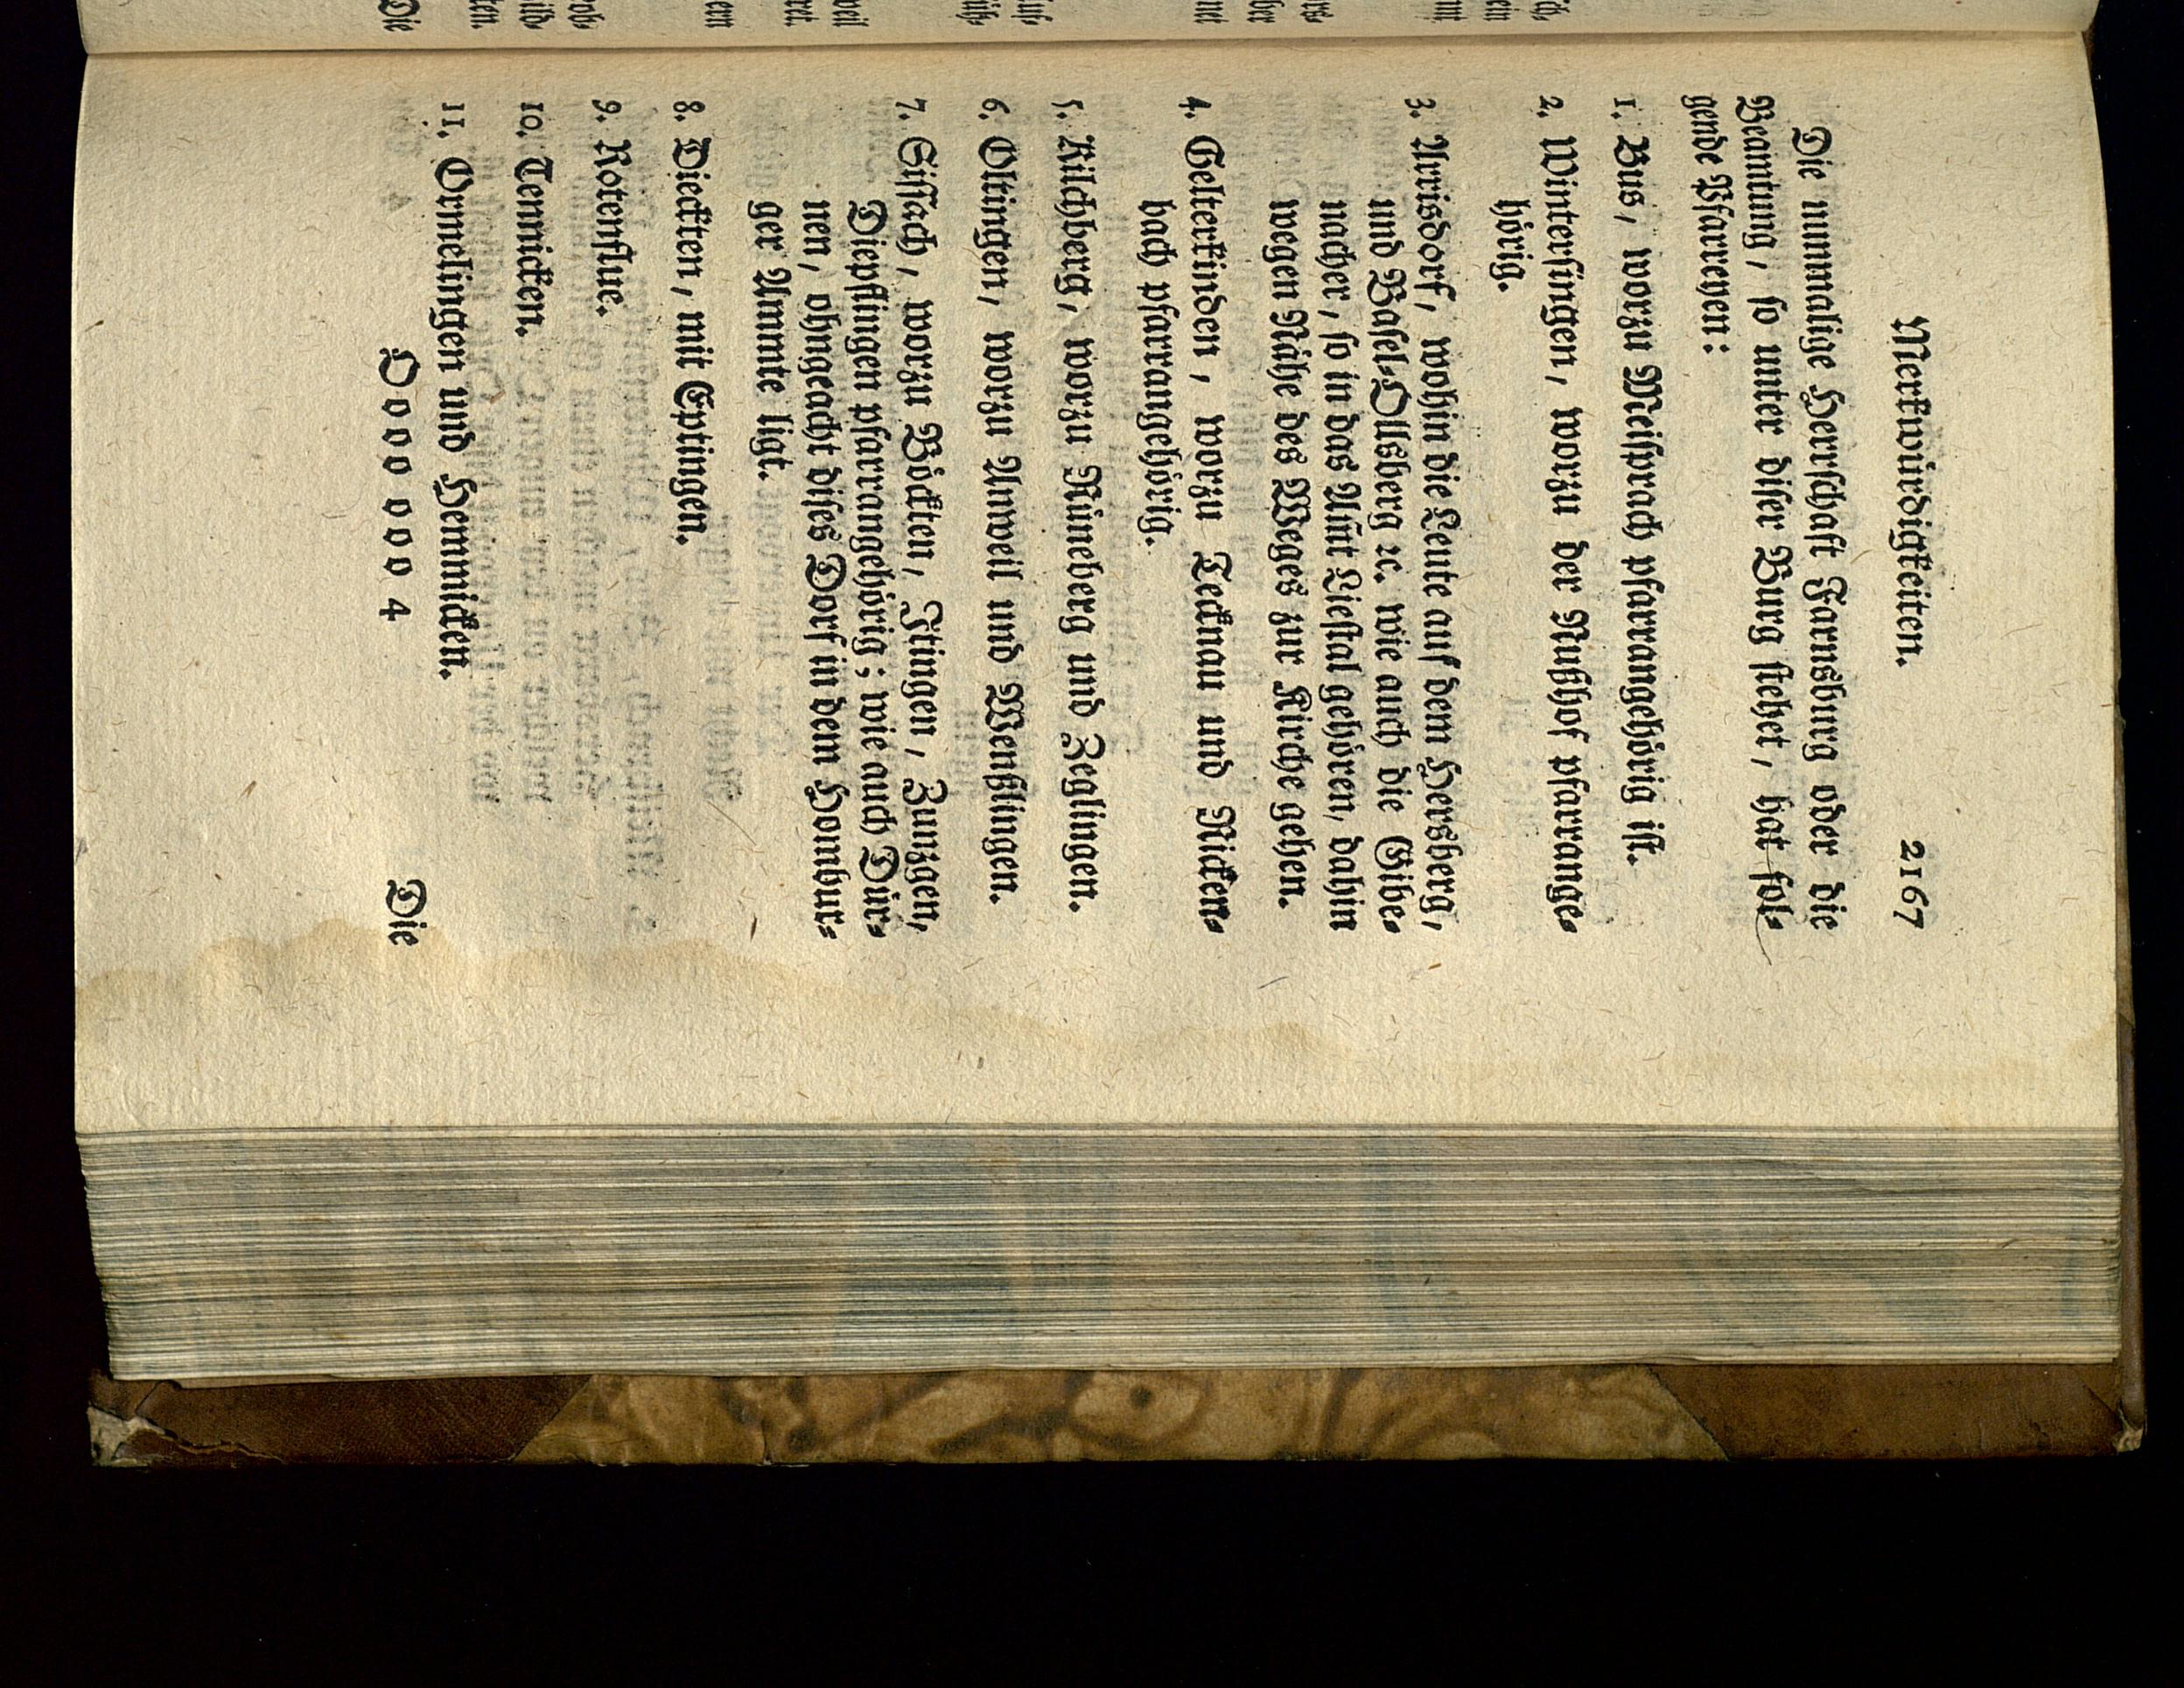 Merkwürdigkeiten. 2167
Die nunmalige Herrschaft Farnsburg oder die
Beamtung, so unter diser Burg stehet, hat fol-
gende Pfarreyen:
1. Bus, worzu Meisprach pfarrangehörig ist.
2. Wintersingen, worzu der Nußhof pfarrange-
hörig.
3. Arrisdorf, wohin die Leute auf dem Hersberg,
und Basel-Ollsberg ꝛc. wie auch die Gibe-
nacher, so in das Amt Liestal gehören, dahin
wegen Nähe des Weges zur Kirche gehen.
4. Gelterkinden, worzu Tecknau und Ricken-
bach pfarrangehörig.
5. Kilchberg, worzu Rüneberg und Zeglingen.
6. Oltingen, worzu Anweil und Wenßlingen.
7. Sissach, worzu Böckten, Itingen, Zunzgen,
Diepflingen pfarrangehörig; wie auch Tür-
nen, ohngeacht dises Dorf in dem Hombur-
ger Ammte ligt.
8. Dieckten, mit Eptingen.
9. Rotenflue.
10. Tennicken.
11. Ormelingen und Hemmicken.
Ooooooo 4 Die